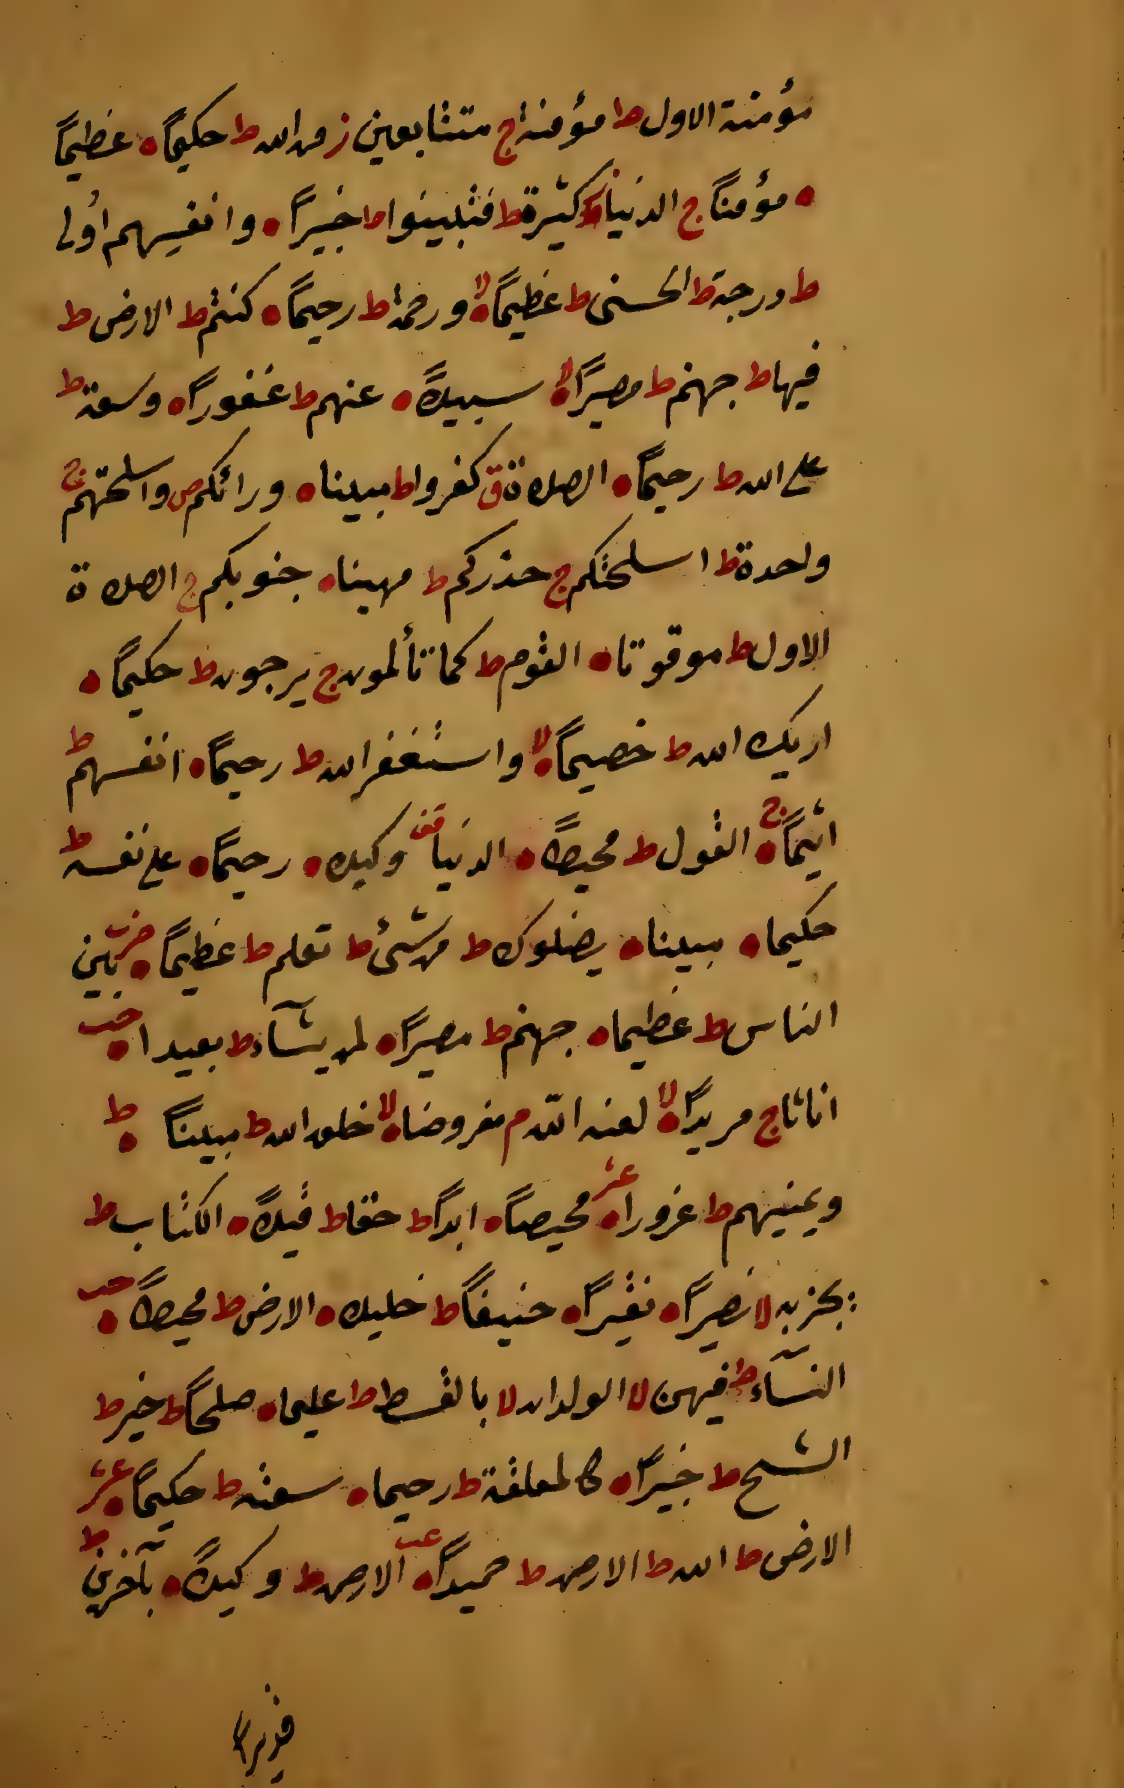 مؤمنة الاول ط مؤمنة ج متتابعين ز من الله ط حكيماً ٥ عظيماً
٥ مؤمناً ج الدنيا ز كثيرة ط فتبينوا ط خبيراً ٥ وانفسهم اولى
ط درجة ط الحسنى ط عظيماً ٥ لا ورحمة ط رحيماً ٥ كنتم ط الارض ط
فيها ط جهنم ط مصيراً ٥ لا سبيلاً ٥ عنهم ط غفوراً ٥ وسعة ط
على الله ط رحيماً ٥ الصلاة ق كفروا ط مبينا ٥ ورائكم ص واسلحتهم ج
واحدة ط اسلحتكم ج حذركم ط مهينا ٥ جنوبكم ج الصلاة
الاول ط موقوتا ٥ القوم ط كما تألمون ج يرجون ط حكيماً ٥
اريك الله ط خصيماً ٥ لا واستغفر الله ط رحيماً ٥ انفسهم ط
اثيماً ٥ ج القول ط محيطاً ٥ الدنيا قف وكيلا ٥ رحيماً ٥ على نفسه ط
حكيما ٥ مبينا ٥ يضلوك ط من شئ ط تعلم ط عظيماً ٥ حزب بين
الناس ط عظيما ٥ جهنم ط مصيراً ٥ لمن يشآء ط بعيدا ٥ خب
اناثا ج مريداً ٥ لا لعنه الله م مفروضا ٥ لا خلق الله ط مبيناً ٥ ط
ويمنيهم ط غرورا ٥ عشر محيصاً ٥ ابداً ط حقا ط قيلاً ٥ الكتاب ط
يجز به لا نصيراً ٥ نقيراً ٥ حنيفاً ط خليلا ٥ الارض ط محيطاً ٥ خب
النسآء ط فيهن لا الولدان لا بالقسط ط عليما ٥ صلحاً ط خير ط
الشح ط خبيراً ٥ كالمعلقة ط رحيما ٥ سعته ط حكيماً ٥ عشر
الارض ط الله ط الارض ط حميداً ٥ عب الارض ط وكيلاً ٥ بآخرين ط